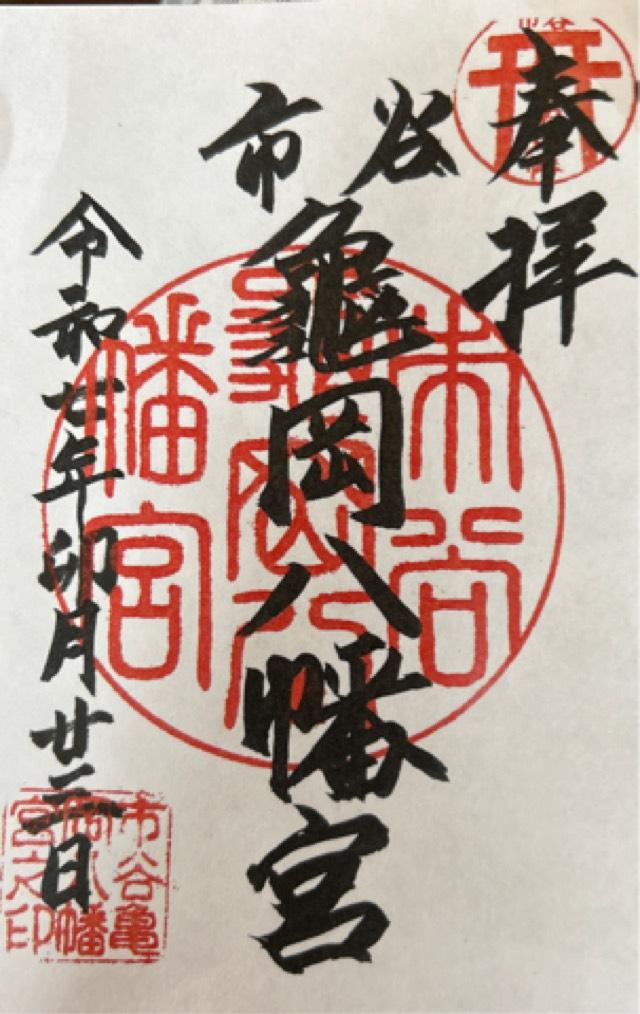 奉拝
市谷
龜岡八幡宮
令和七年卯月廿三日
市谷
龜岡八
幡宮
市谷亀
岡八幡
宮之印